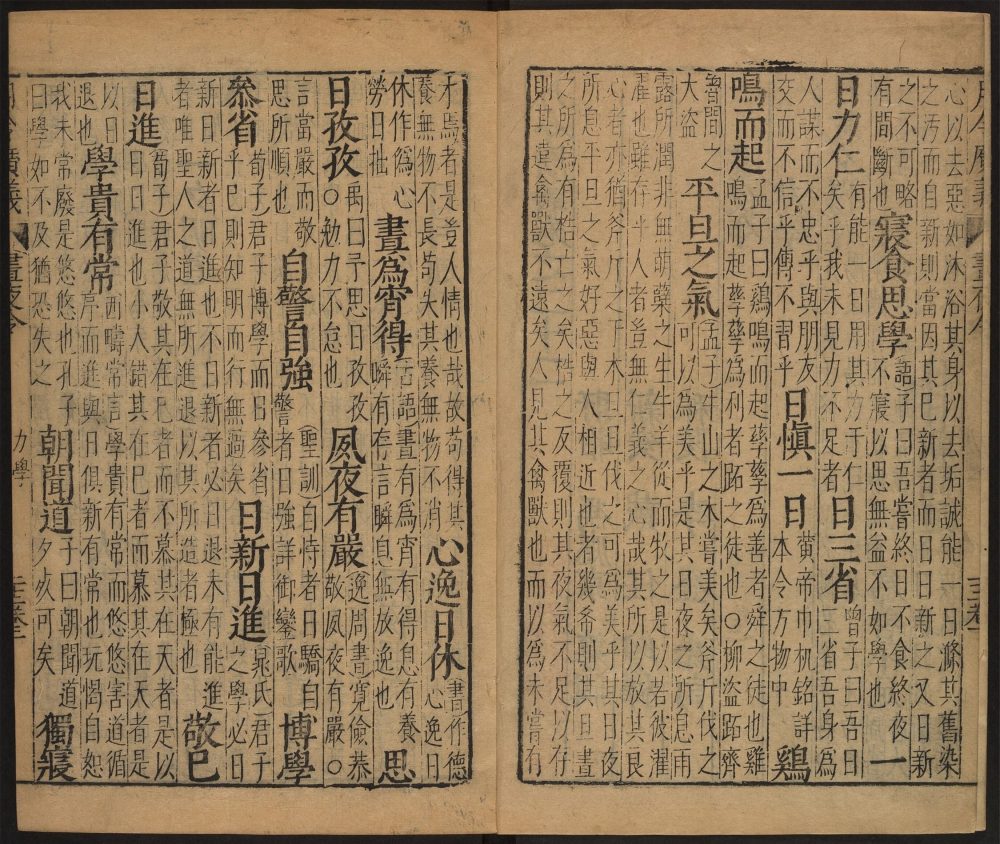 月令廣義
晝夜令
心以去惡如沐浴其身以去垢誠能一日滌其舊染
之汚而自新則當因其已新者而日日新之又日新
之不可略有間斷也 寢食思學 語子曰吾嘗終日不食終夜不寢以思無益不如學也 一
日力仁 有能一日用其力于仁矣乎我未見力不足者 日三省 曾子曰吾日三省吾身爲
人謀而不忠乎與朋友交而不信乎傳不習乎 日愼一日 黄帝巾机銘詳本令方物中 鷄
鳴而起 孟子曰鷄鳴而起孳孳爲善者舜之徒也雞鳴而起孳孳爲利者跖之徒也○柳盜跖齊
魯間之大盜 平旦之氣 孟子牛山之木嘗美矣斧斤伐之可以爲美乎是其日夜之所息雨
露所潤非無萌蘖之生牛羊從而牧之是以若彼濯
濯也雖存乎人者豈無仁義之心哉其所以放其良
心者亦猶斧斤之于木旦旦伐之可爲美乎其日夜
所息平旦之氣好惡與人相近也者幾希則其旦晝
之所爲有梏亡之矣梏之反覆則其夜氣不足以存
則其違禽獸不遠矣人見其禽獸也而以爲未嘗有
才焉者是豈人情也哉故苟得其養無物不長苟失其養無物不消 心逸日休 書作德心逸日
休作僞心勞日拙 晝爲宵得 古語晝有爲宵有得息有養瞬有存言瞬息無放逸也 思
日孜孜 ○禹曰予思日孜孜○勉力不怠也 夙夜有嚴 逸周書寛儉恭敬夙夜有嚴○
言當嚴而敬思所順也 自警自強 聖訓自恃者日驕自警者日強詳御鑾歌 博學
叅省 荀子君子博學而日參省乎己則知明而行無過矣 日新日進 晁氏君子之學必日
新日新者日進也不日新者必日退未有能進者唯聖人之道無所進退以其所造者極也 敬已
日進 荀子君子敬其在己者而不慕其在天者是以日日進也小人錯其在己者而慕其在天者是
以日退也 學貴有常 西疇常言學貴有常而悠悠害道循序而進與日俱新有常也玩愒自恕
我未常廢是悠悠也孔子曰學如不及猶恐失之 朝聞道 子曰朝聞道夕死可矣 獨寢
晝夜令
力學